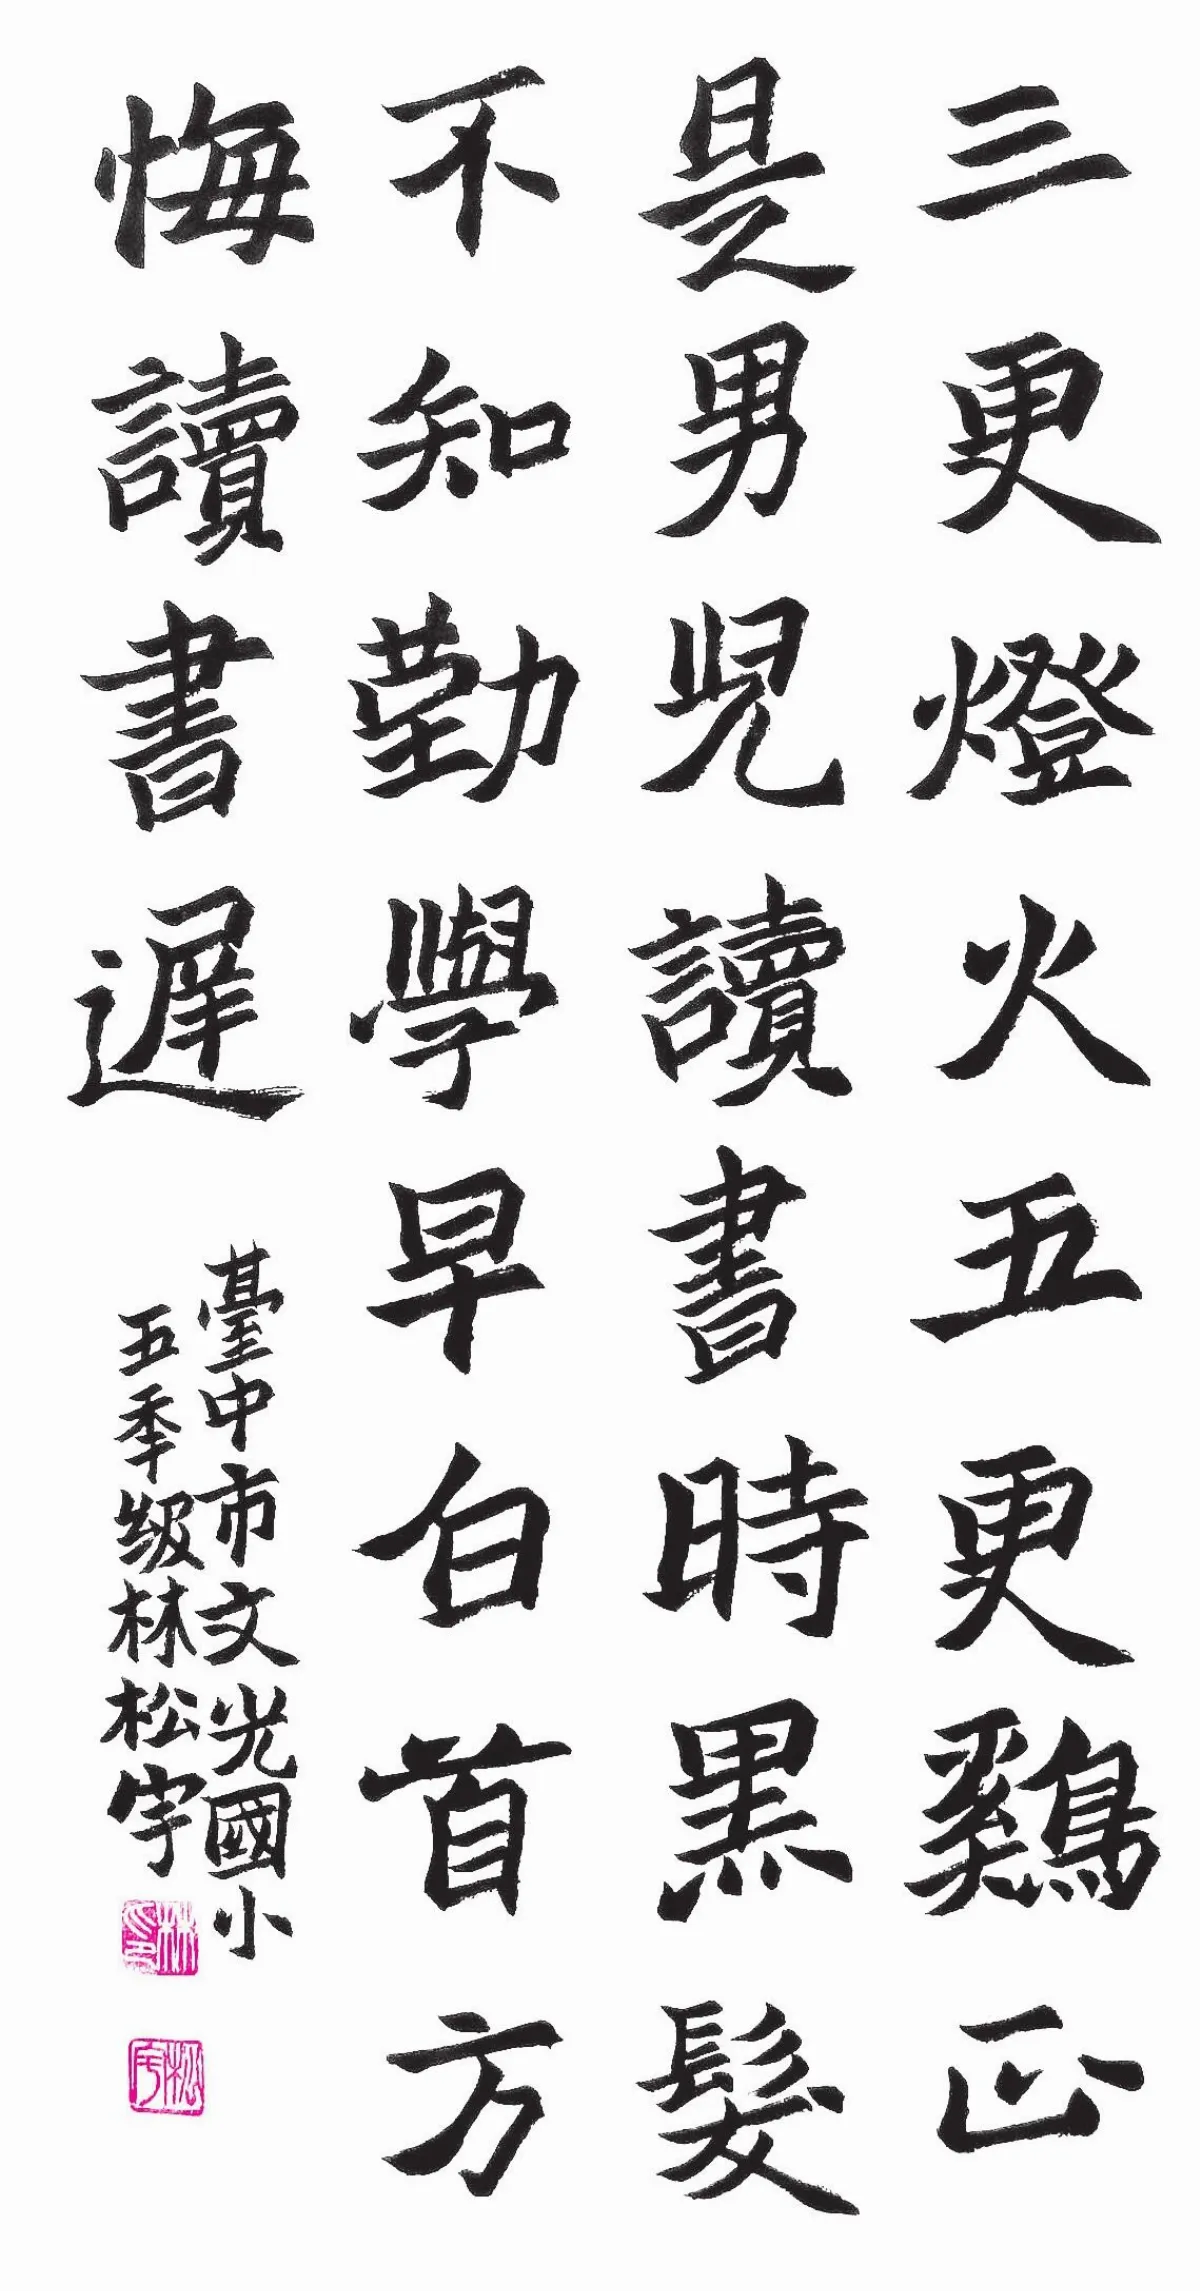 三更燈火五更鷄正
是男児讀書時黑髮
不知勤學早白首方
悔讀書遲
臺中市文光國小
五季級林松宇